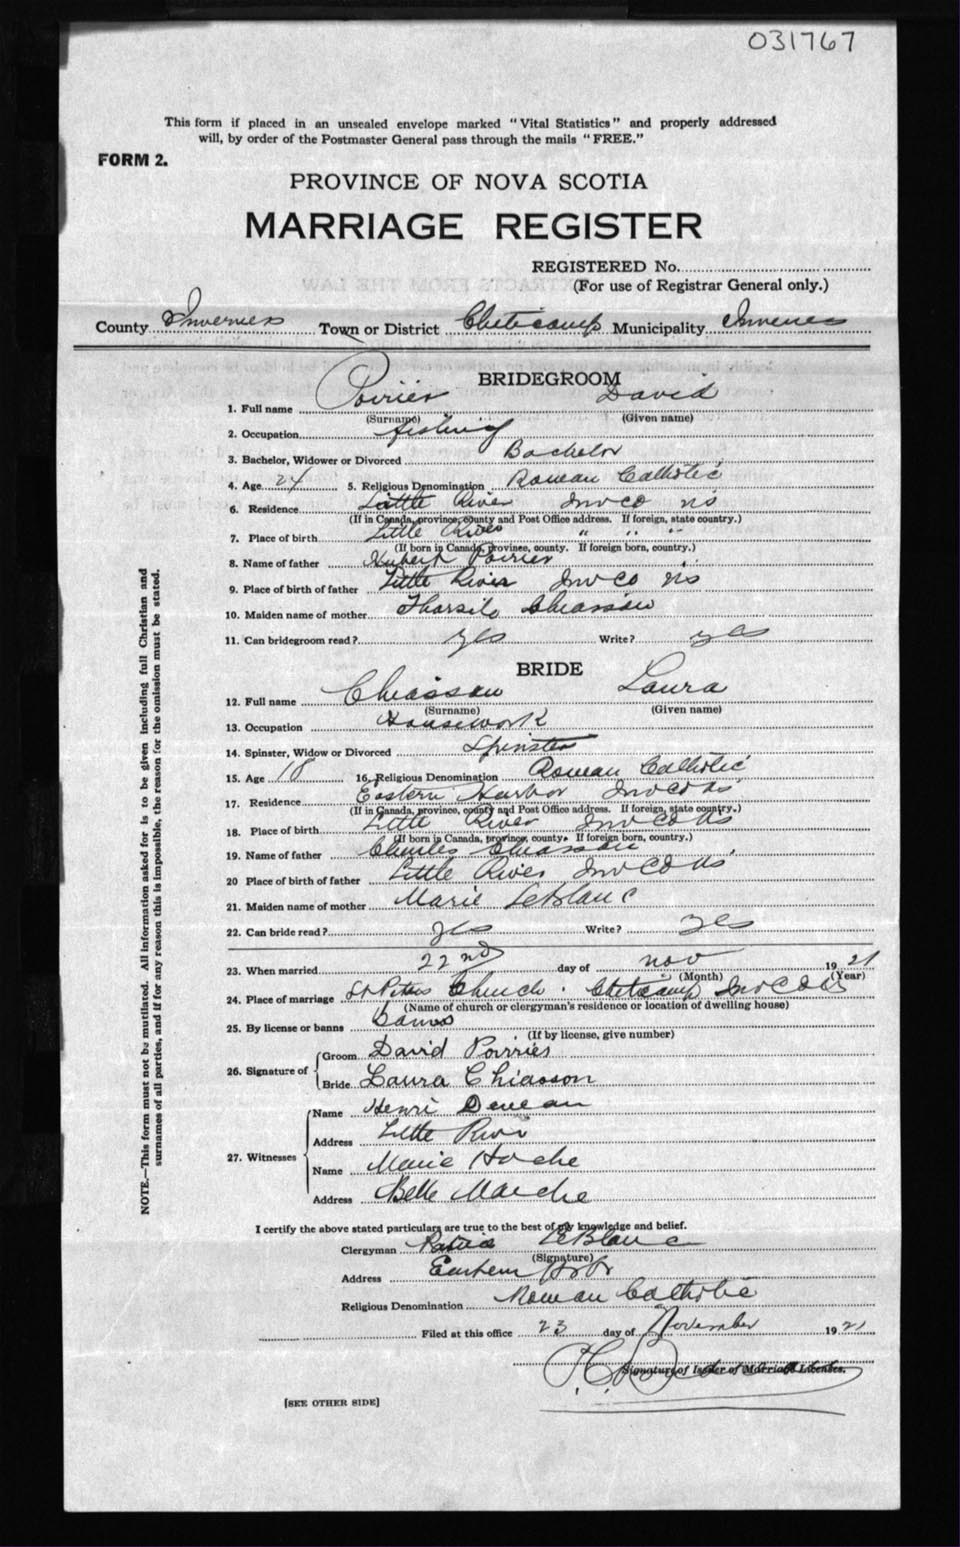 031767
This form if placed in an unsealed envelope marked "Vital Statistics" and properly addressed
will, by order of the Postmaster General pass through the mails "FREE."
FORM 2.
PROVINCE OF NOVA SCOTIA
MARRIAGE REGISTER
REGISTERED No.
(For use of Registrar General only.)
County Inverness Town or District Cheticamp Municipality Inverness
BRIDEGROOM
1. Full name Poirier David
(Surname) (Given name)
2. Occupation fishing
3. Bachelor, Widower or Divorced Bachelor
4. Age 24 5. Religious Denomination Roman Catholic
6. Residence Little River Inv Co NS
(If in Canada, province, county and Post Office address. If foreign, state country.)
7. Place of birth Little River " " "
(If born in Canada, province, county. If foreign born, country.)
8. Name of father Hubert Poirier
9. Place of birth of father Little River Inv Co NS
10. Maiden name of mother Tharsile Chiasson
11. Can bridegroom read? yes Write? yes
BRIDE
12. Full name Chiasson Laura
(Surname) (Given name)
13. Occupation Housework
14. Spinster, Widow or Divorced Spinster
15. Age 18 16. Religious Denomination Roman Catholic
17. Residence Eastern Harbor Inv Co NS
(If in Canada, province, county and Post Office address. If foreign, state country.)
18. Place of birth Little River Inv Co NS
(If born in Canada, province, county. If foreign born, country.)
19. Name of father Charles Chiasson
20 Place of birth of father Little River Inv Co NS
21. Maiden name of mother Marie LeBlanc
22. Can bride read? yes Write? yes
23. When married 22nd day of nov 1921
(Month) (Year)
24. Place of marriage St Peters Church. Cheticamp Inv Co NS
(Name of church or clergyman's residence or location of dwelling house)
25. By license or banns banns
(If by license, give number)
26. Signature of Groom David Poirries
Bride Laura Chiasson
27. Witnesses Name Henri Deveau
Address Little River
Name Marie Hache
Address Belle Marche
I certify the above stated particulars are true to the best of my knowledge and belief.
Clergyman LeBlanc
(Signature)
Address Eastern Hrbr
Religious Denomination Roman Catholic
Filed at this office 23 day of November 1921
Signature of Issuer of Marriage Licenses.
[SEE OTHER SIDE]
NOTE.—This form must not be mutilated. All information asked for is to be given including full Christian and
surnames of all parties, and if for any reason this is impossible, the reason for the omission must be stated.